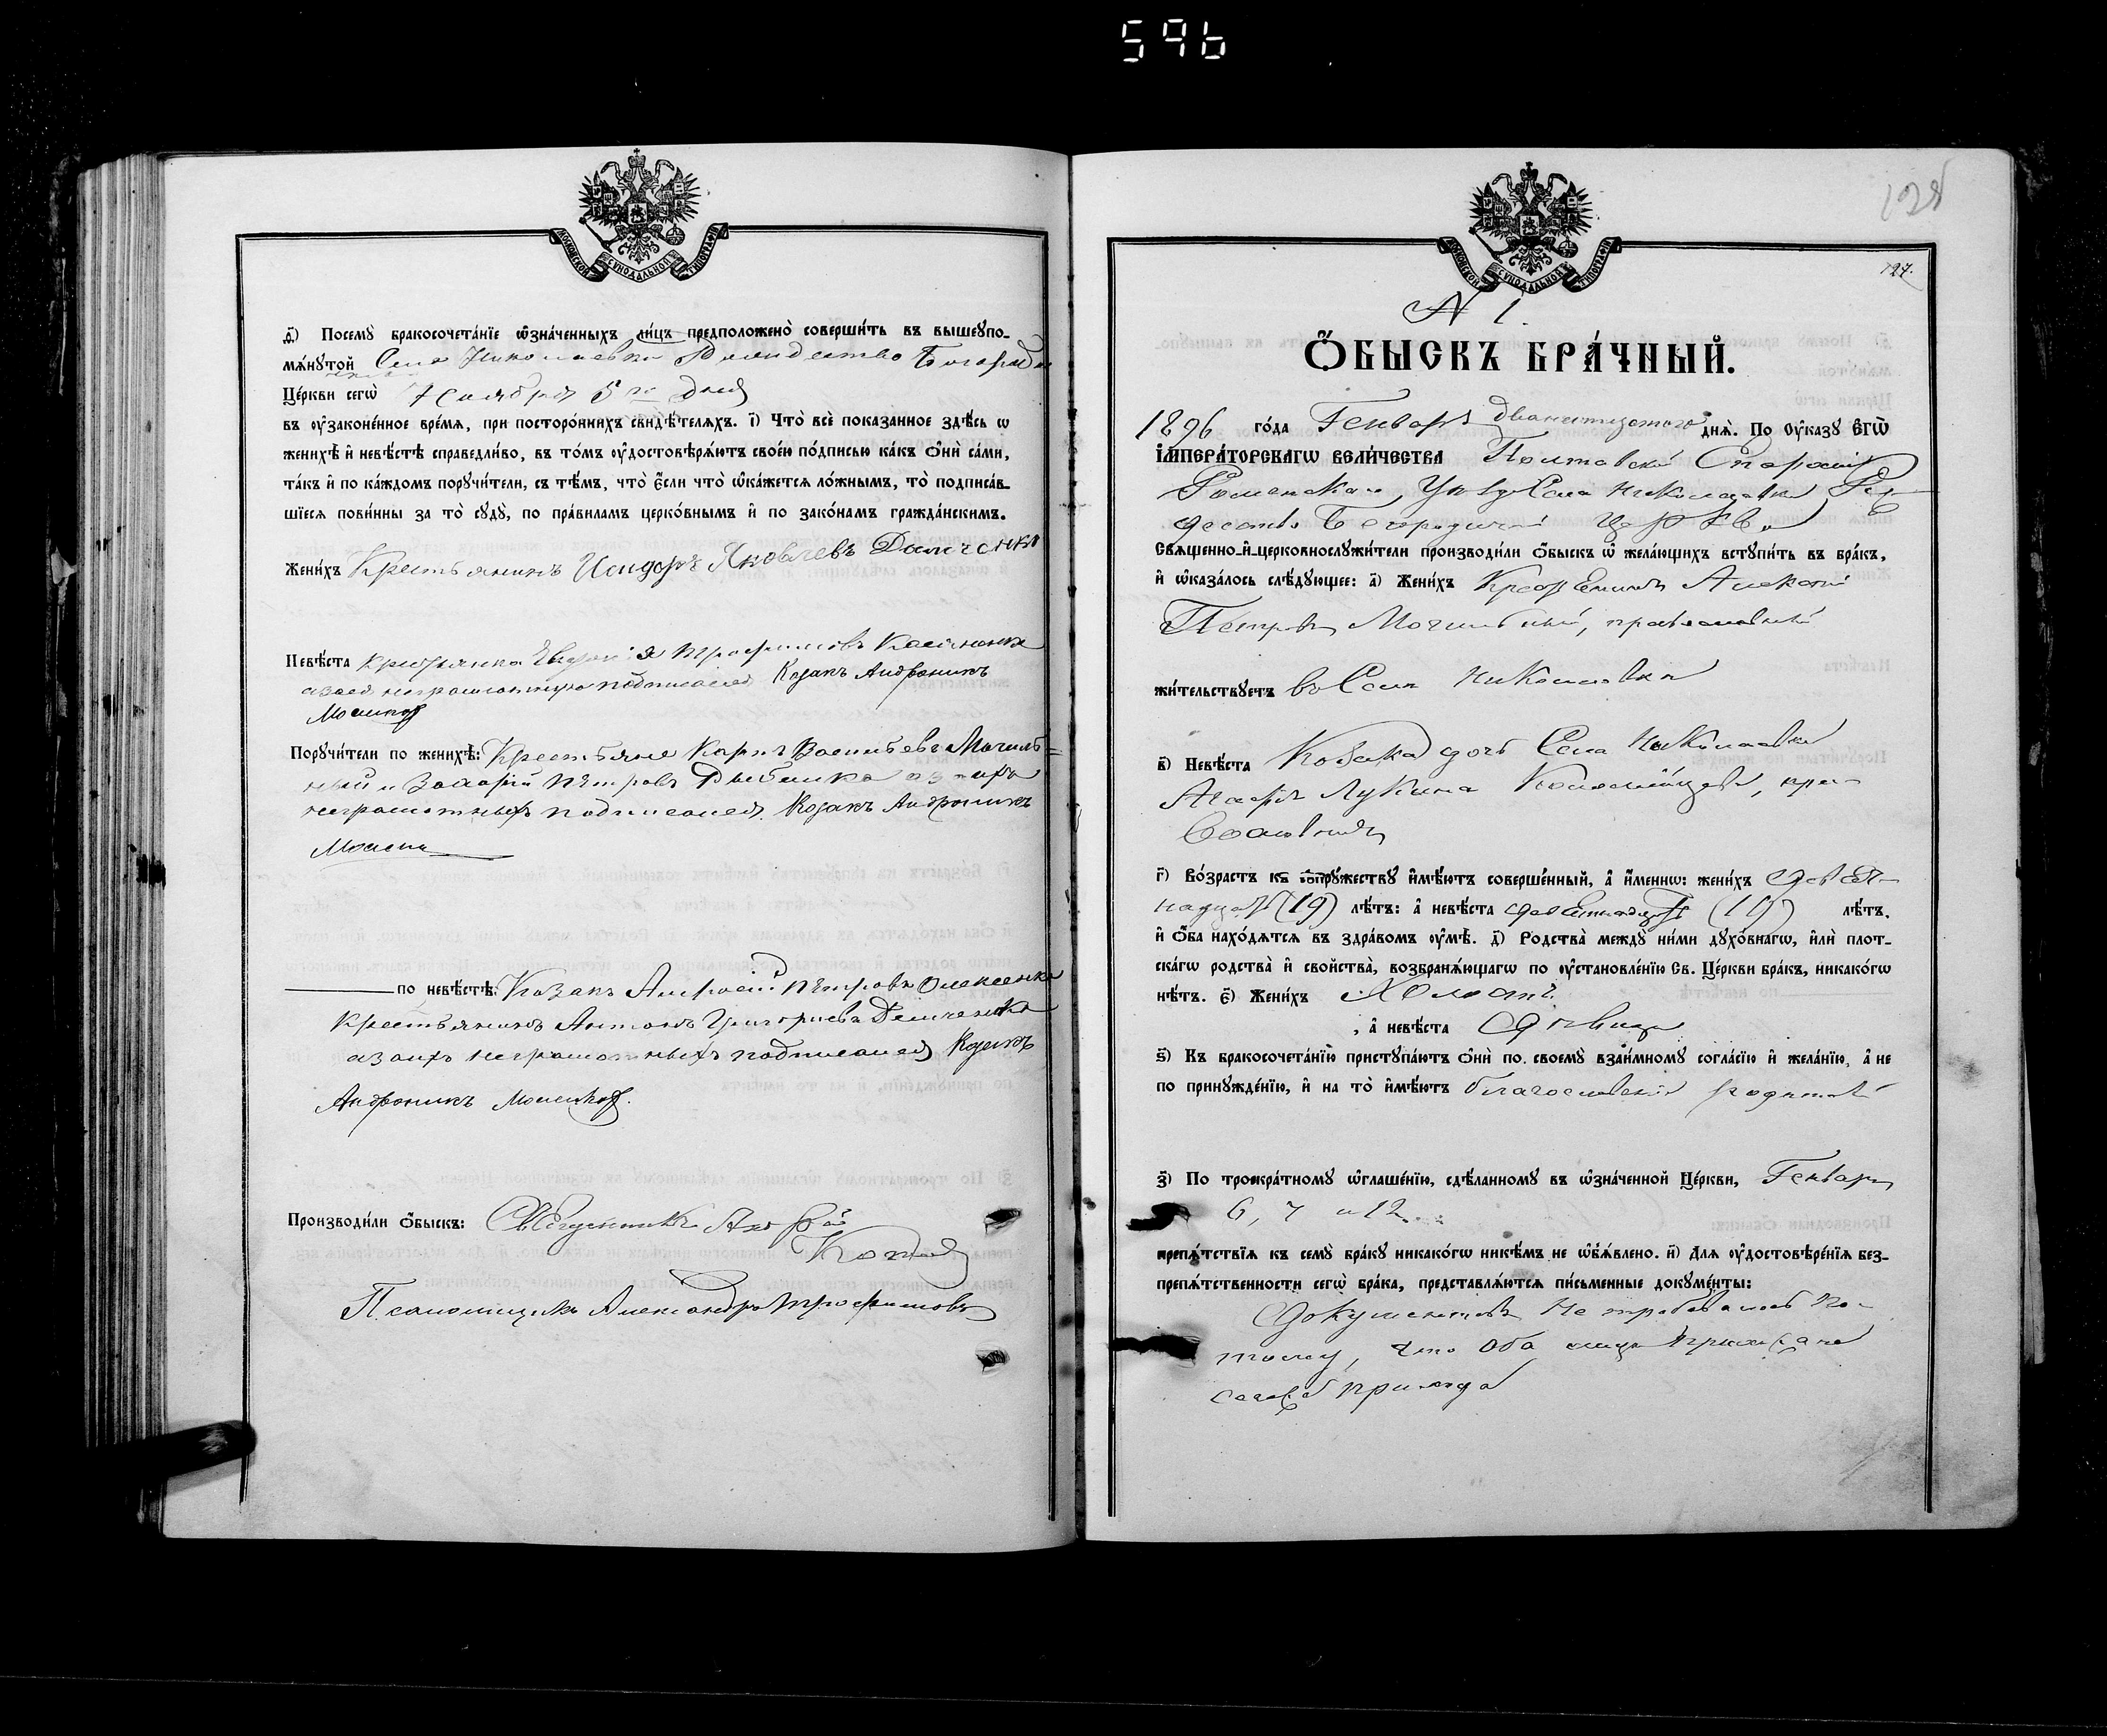 596
МОСКОВСКОЙ СѴНОДАЛЬНОЙ ТИПОГРАФІИ
ѳ҃) Посемꙋ̀ бракосочета́нїе ѡ҆зна́ченныхъ ли́цъ предположено̀ соверши́ть въ вышеꙋпо-
мѧ́нꙋтой Села Николаевки Рождество Богороди
Це́ркви сегѡ̀ Ноября 5 го дня
въ ᲂу҆законе́нное вре́мѧ, при посторо́ннихъ свидѣ́телѧхъ. і҃) Что̀ всѐ пока́занное здѣ́сь ѡ
женихѣ̀ и҆ невѣ́стѣ справедли́во, въ то́мъ ᲂу҆достовѣрѧ́ютъ свое́ю по́дписью ка́къ ѻ҆нѝ са́ми,
та́къ и҆ по ка́ждомъ порꙋчи́тели, съ тѣ́мъ, что̀ є҆́сли что̀ ѡ҆ка́жетсѧ ло́жнымъ, то̀ подписа́в-
шїесѧ пови́нны за то̀ сꙋдꙋ̀, по пра́виламъ церко́внымъ и҆ по зако́намъ гражда́нскимъ.
Жени́хъ Крестьянинъ Исидоръ Яковлевъ
Невѣ́ста Трофимова
неграмотную подписался Козакъ Андроникъ
Порꙋчи́тели по женихѣ̀: Крестьяне Карпъ Васильевъ Могиль-
ный и Захарій Петровъ а за нихъ
неграмотныхъ подписался Козакъ Андроникъ
по невѣ́стѣ: Козакъ Петровъ Олексенко
Крестьянинъ Антонъ Григорьевъ
а за ихъ неграмотныхъ подписался Козакъ
Андроникъ
Производи́ли ѻ҆́быскъ: Священникъ
Псаломщикъ Александръ Трофимовъ
128
127.
МОСКОВСКОЙ СѴНОДАЛЬНОЙ ТИПОГРАФІИ
N 1.
Ѻ҆́БЫСКЪ БРА́ЧНЫЙ.
1896 го́да Генваря двенатцатого днѧ̀. По ᲂу҆ка́зꙋ Є҆гѡ̀
І҆мпера́торскагѡ Вели́чества Полтавской Епархіи
Роменскаго Уѣзда Села Николаевки Рож-
дество Богородичной Церкви
Свѧще́нно-и҆-церковнослꙋжи́тели производи́ли ѻ҆́быскъ ѡ҆ жела́ющихъ встꙋпи́ть въ бра́къ,
и҆ ѡ҆каза́лось слѣ́дꙋющее: а҃) Жени́хъ Крестьянинъ Алексій
Петровъ Могильный, православный
жи́тельствꙋетъ въ Селѣ Николаевки
в҃) Невѣ́ста Козака дочь Села Николаевки
Агафія Лукина Коломійцева, пра-
вославная
г҃) Во́зрастъ къ сопрꙋ́жествꙋ и҆мѣ́ютъ соверше́нный, а҆ и҆́менно: жени́хъ девят-
надцать (19) лѣ́тъ: а҆ невѣ́ста девятнадцать (19) лѣ́тъ.
и҆ ѻ҆́ба нахо́дѧтсѧ въ здра́вомъ ᲂу҆мѣ̀. д҃) Родства̀ междꙋ̀ ни́ми дꙋхо́внагѡ, и҆лѝ плот-
ска́гѡ родства̀ и҆ свойства̀, возбранѧ́ющагѡ по ᲂу҆становле́нїю Св. Це́ркви бра́къ, никако́гѡ
нѣ́тъ. є҃) Жени́хъ Холостъ
, а҆ невѣ́ста Дѣвица
ѕ҃) Къ бракосочета́нїю пристꙋпа́ютъ ѻ҆нѝ по своемꙋ̀ взаи́мномꙋ согла́сїю и҆ жела́нїю, а҆ не
по принꙋжде́нїю, и҆ на то̀ и҆мѣ́ютъ благословеніе родителей
з҃) По троекра́тномꙋ ѡ҆глаше́нїю, сдѣ́ланномꙋ въ ѡ҆зна́ченной Це́ркви, Генваря
6, 7 и 12
препѧ́тствїѧ къ семꙋ̀ бра́кꙋ никако́гѡ никѣ́мъ не ѡ҆б̾ѧ́влено. и҃) Длѧ ᲂу҆достовѣре́нїѧ без-
препѧ́тственности сегѡ̀ бра́ка, представлѧ́ютсѧ пи́сьменные докꙋме́нты:
Документовъ не требовалось по-
тому, что оба лица прихожане
сего прихода